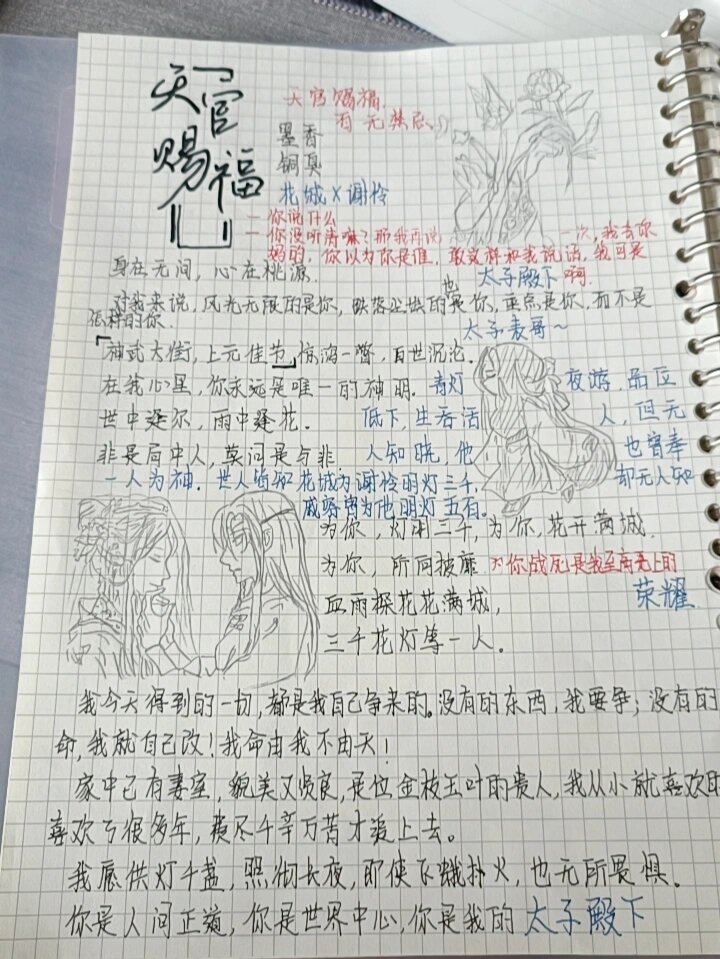 天官赐福
天官赐福，
百无禁忌
墨香
铜臭
花城×谢怜
—你说什么
—你没听清嘛？那我再说一次，我去你
妈的，你以为你是谁，敢这样和我说话，我可是
太子殿下啊
身在无间，心在桃源
对我来说，风光无限的是你，跌落尘埃的也是你，重点是你，而不是
怎样的你．
太子表哥～
「神武大街，上元佳节」惊鸿一瞥，百世沉沦．
在我心里，你永远是唯一的神明．
世中逢尔，雨中逢花．
非是局中人，莫问是与非．
青灯夜游，品位
低下，生吞活人，但无
人知晓，他也曾奉
一人为神．世人皆知花城为谢怜明灯三千，却无人知
戚容曾为他明灯五百．
为你，灯明三千，为你，花开满城．
为你，所向披靡
为你战死是我至高无上的
荣耀
血雨探花花满城，
三千花灯等一人．
我今天得到的一切，都是我自己争来的。没有的东西，我要争；没有的
命，我就自己改！我命由我不由天！
家中已有妻室，貌美又贤良，是位金枝玉叶的贵人，我从小就喜欢的
喜欢了很多年，费尽千辛万苦才追上去。
我愿供灯千盏，照彻长夜，即使飞蛾扑火，也无所畏惧．
你是人间正道，你是世界中心，你是我的太子殿下